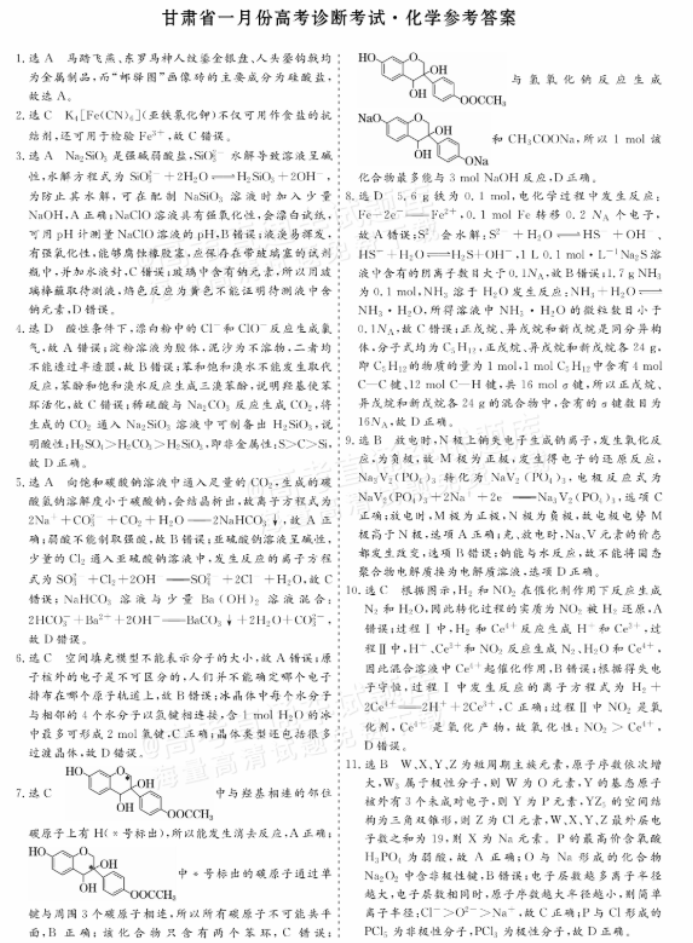 甘肃省一月份高考诊断考试·化学参考答案
1.选 A　马踏飞燕、东罗马神人纹鎏金银盘、人头銎钩戟均
为金属制品,而“邮驿图”画像砖的主要成分为硅酸盐,
故选 A。
2.选 C　K₄[Fe(CN)₆](亚铁氰化钾)不仅可用作食盐的抗
结剂,还可用于检验 Fe³⁺,故 C 错误。
3.选 A　Na₂SiO₃ 是强碱弱酸盐,SiO₃²⁻ 水解导致溶液呈碱
性,水解方程式为 SiO₃²⁻+2H₂O⇌H₂SiO₃+2OH⁻,
为防止其水解,可在配制 NaSiO₃ 溶液时加入少量
NaOH,A 正确;NaClO 溶液具有强氧化性,会漂白试纸,
可用 pH 计测量 NaClO 溶液的 pH,B 错误;液溴易挥发,
有强氧化性,能够腐蚀橡胶塞,应保存在带玻璃塞的试剂
瓶中,并加水液封,C 错误;玻璃中含有钠元素,所以用玻
璃棒蘸取待测液,焰色反应为黄色不能证明待测液中含
钠元素,D 错误。
4.选 D　酸性条件下,漂白粉中的 Cl⁻ 和 ClO⁻ 反应生成氯
气,故 A 错误;淀粉溶液为胶体,泥沙为不溶物,二者均
不能透过半透膜,故 B 错误;苯和饱和溴水不能发生取代
反应,苯酚和饱和溴水反应生成三溴苯酚,说明羟基使苯
环活化,故 C 错误;稀硫酸与 Na₂CO₃ 反应生成 CO₂,将
生成的 CO₂ 通入 Na₂SiO₃ 溶液中可制备出 H₂SiO₃,说
明酸性:H₂SO₄>H₂CO₃>H₂SiO₃,即非金属性:S>C>Si,
故 D 正确。
5.选 A　向饱和碳酸钠溶液中通入足量的 CO₂,生成的碳
酸氢钠溶解度小于碳酸钠,会结晶析出,故离子方程式为
2Na⁺+CO₃²⁻+CO₂+H₂O══2NaHCO₃↓,故 A 正
确;弱酸不能制取强酸,故 B 错误;亚硫酸钠溶液呈碱性,
少量的 Cl₂ 通入亚硫酸钠溶液中,发生反应的离子方程
式为 SO₃²⁻+Cl₂+2OH⁻══SO₄²⁻+2Cl⁻+H₂O,故 C
错误;NaHCO₃ 溶液与少量 Ba(OH)₂ 溶液混合:
2HCO₃⁻+Ba²⁺+2OH⁻══BaCO₃↓+2H₂O+CO₃²⁻,
故 D 错误。
6.选 C　空间填充模型不能表示分子的大小,故 A 错误;原
子核外的电子是不可区分的,人们并不能确定哪个电子
排布在哪个原子轨道上,故 B 错误;冰晶体中每个水分子
与相邻的 4 个水分子以氢键相连接,含 1 mol H₂O 的冰
中最多可形成 2 mol 氢键,C 正确;晶体类型还包括很多
过渡晶体,故 D 错误。
7.选 C　HO O OH OH OOCCH₃ 中与羟基相连的邻位
碳原子上有 H(*号标出),所以能发生消去反应,A 正确;
HO O OH OH OOCCH₃ 中*号标出的碳原子通过单
键与周围 3 个碳原子相连,所以所有碳原子不可能共平
面,B 正确;该化合物只含有两个苯环,C 错误;
HO O OH OH OOCCH₃ 与氢氧化钠反应生成
NaO O OH OH ONa 和 CH₃COONa,所以 1 mol 该
化合物最多能与 3 mol NaOH 反应,D 正确。
8.选 D　5.6 g 铁为 0.1 mol,电化学过程中发生反应:
Fe−2e⁻══Fe²⁺,0.1 mol Fe 转移 0.2 N_A 个电子,
故 A 错误;S²⁻ 会水解:S²⁻+H₂O⇌HS⁻+OH⁻、
HS⁻+H₂O⇌H₂S+OH⁻,1 L 0.1 mol·L⁻¹Na₂S 溶
液中含有的阴离子数目大于 0.1N_A,故 B 错误;1.7 g NH₃
为 0.1 mol,NH₃ 溶于 H₂O 发生反应:NH₃+H₂O⇌
NH₃·H₂O,所得溶液中 NH₃·H₂O 的微粒数目小于
0.1N_A,故 C 错误;正戊烷、异戊烷和新戊烷是同分异构
体,分子式均为 C₅H₁₂,正戊烷、异戊烷和新戊烷各 24 g,
即 C₅H₁₂ 的物质的量为 1 mol,1 mol C₅H₁₂ 中含有 4 mol
C—C 键、12 mol C—H 键,共 16 mol σ 键,所以正戊烷、
异戊烷和新戊烷各 24 g 的混合物中,含有的 σ 键数目为
16N_A,故 D 正确。
9.选 B　放电时,N 极上钠失电子生成钠离子,发生氧化反
应,为负极,故 M 极为正极,发生得电子的还原反应,
Na₃V₂(PO₄)₃ 转化为 NaV₂(PO₄)₃,电极反应式为
NaV₂(PO₄)₃+2Na⁺+2e⁻══Na₃V₂(PO₄)₃,选项 C
正确;放电时,M 极为正极,N 极为负极,故电极电势 M
极高于 N 极,选项 A 正确;充、放电时,Na、V 元素的价态
都发生改变,选项 B 错误;钠能与水反应,故不能将固态
聚合物电解质换为电解质溶液,选项 D 正确。
10.选 C　根据图示,H₂ 和 NO₂ 在催化剂作用下反应生成
N₂ 和 H₂O,因此转化过程的实质为 NO₂ 被 H₂ 还原,A
错误;过程Ⅰ中,H₂ 和 Ce⁴⁺ 反应生成 H⁺ 和 Ce³⁺,过
程Ⅱ中,H⁺、Ce³⁺ 和 NO₂ 反应生成 N₂、H₂O 和 Ce⁴⁺,
因此混合溶液中 Ce⁴⁺ 起催化作用,B 错误;根据得失电
子守恒,过程Ⅰ中发生反应的离子方程式为 H₂+
2Ce⁴⁺══2H⁺+2Ce³⁺,C 正确;过程Ⅱ中 NO₂ 是氧
化剂,Ce⁴⁺ 是氧化产物,故氧化性:NO₂>Ce⁴⁺,
D 错误。
11.选 B　W、X、Y、Z 为短周期主族元素,原子序数依次增
大,W₃ 属于极性分子,则 W 为 O 元素,Y 的基态原子
核外有 3 个未成对电子,则 Y 为 P 元素,YZ₅ 的空间结
构为三角双锥形,则 Z 为 Cl 元素,W、X、Y、Z 最外层电
子数之和为 19,则 X 为 Na 元素。P 的最高价含氧酸
H₃PO₄ 为弱酸,故 A 正确;O 与 Na 形成的化合物
Na₂O₂ 中含非极性键,B 错误;电子层数越多离子半径
越大,电子层数相同时,原子序数越大半径越小,则简单
离子半径:Cl⁻>O²⁻>Na⁺,故 C 正确;P 与 Cl 形成的
PCl₅ 为非极性分子,PCl₃ 为极性分子,故 D 正确。